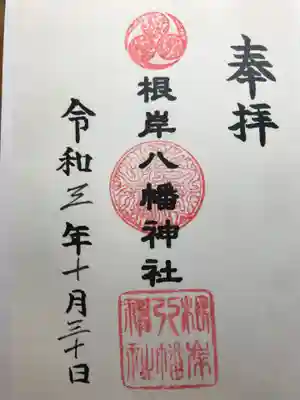 奉拝
根岸八幡神社
令和三年十月三十日
根岸八幡神社